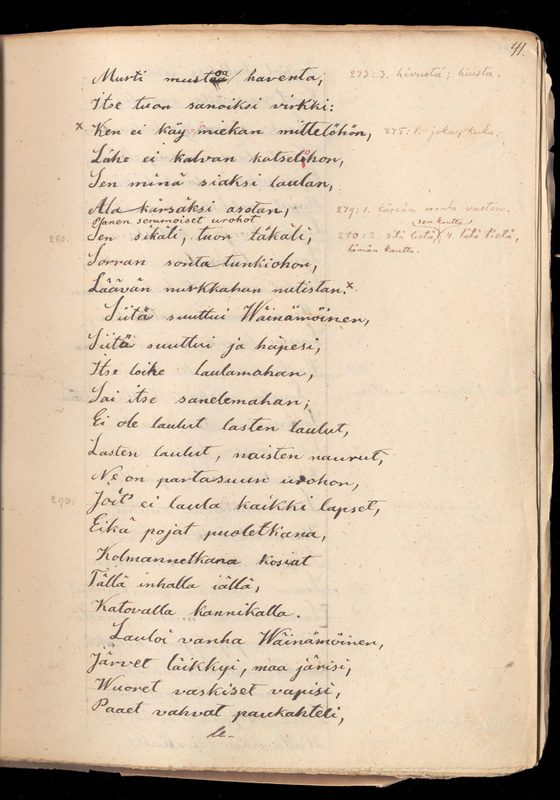 41.
Murti mustoa haventa;
273: 3. hivustá; hiusta.
Itse tuon sanoiksi virkki:
x Ken ei käy miekan mittelöhön,
275: 1. joka, kuka.
Lähe ei kalvan katselohon,
Sen minä siaksi laulan,
Ala kärsäksi asetan,
279: 1. kärsän maata vasten.
Panen semmoiset urohot
son kautta
280.
Sen sikäli, tuon täkäli,
280: 2. sitä tietä, 4. tätä tietä,
tämän kautta.
Sorran sonta tunkiohon,
Läävän nurkkahan nutistan. x
Siitä suuttui Wäinämöinen,
Siitä suuttui ja häpesi,
Itse loihe laulamahan,
Sai itse sanelemahan;
Ei ole laulut lasten laulut,
Lasten laulut, naisten naurut,
Ne on partasuun urohon,
290.
Joit' ei laula kaikki lapset,
Eikä pojat puoletkana,
Kolmannetkana kosiat
Tällä inhalla iällä,
Katovalla kannikalla.
Lauloi vanha Wäinämöinen,
Järvet läikkyi, maa järisi,
Wuoret vaskiset vapisi,
Paaet vahvat paukahteli,